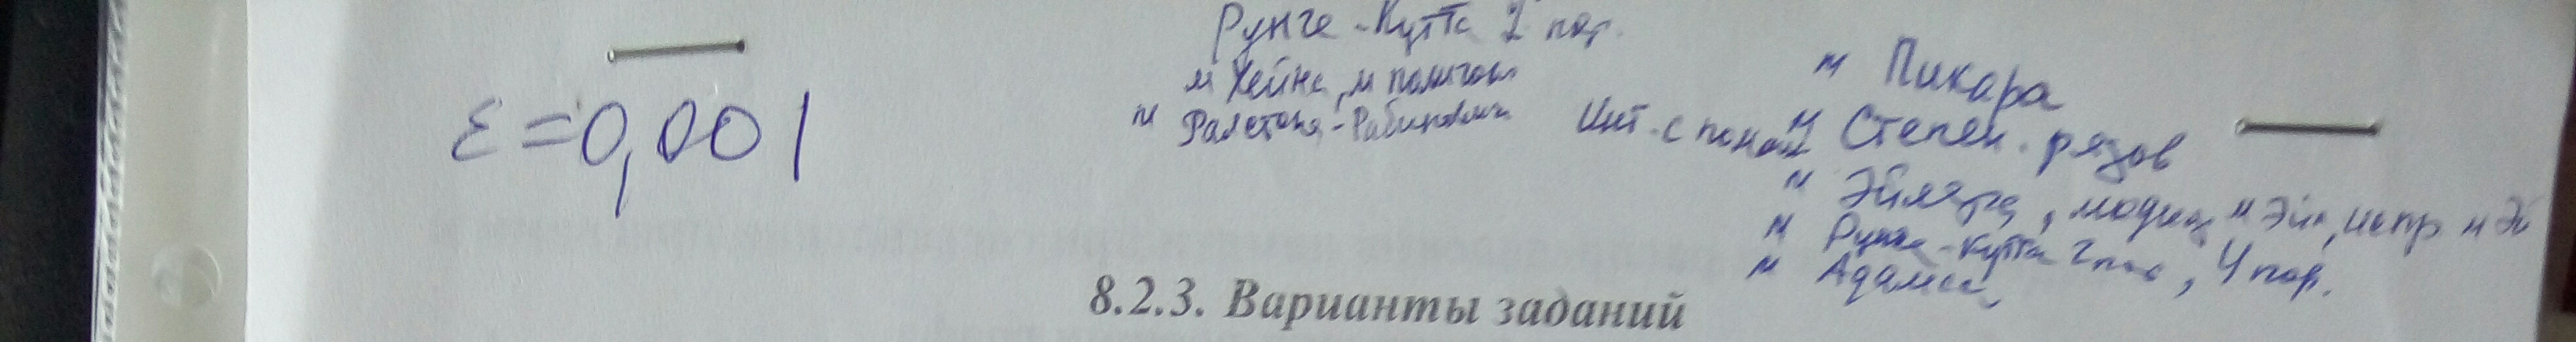 ε = 0,001
Рунге-Кутта 2 пор.
м Хейна, м
м Ралстона-Рабиновича
Инт. с
м Пикара
м Степен. рядов
м Эйлера, модиф м Эйл, испр м Эй
м Рунге-Кутта 2 пор, 4 пор.
м Адамса
8.2.3. Варианты заданий